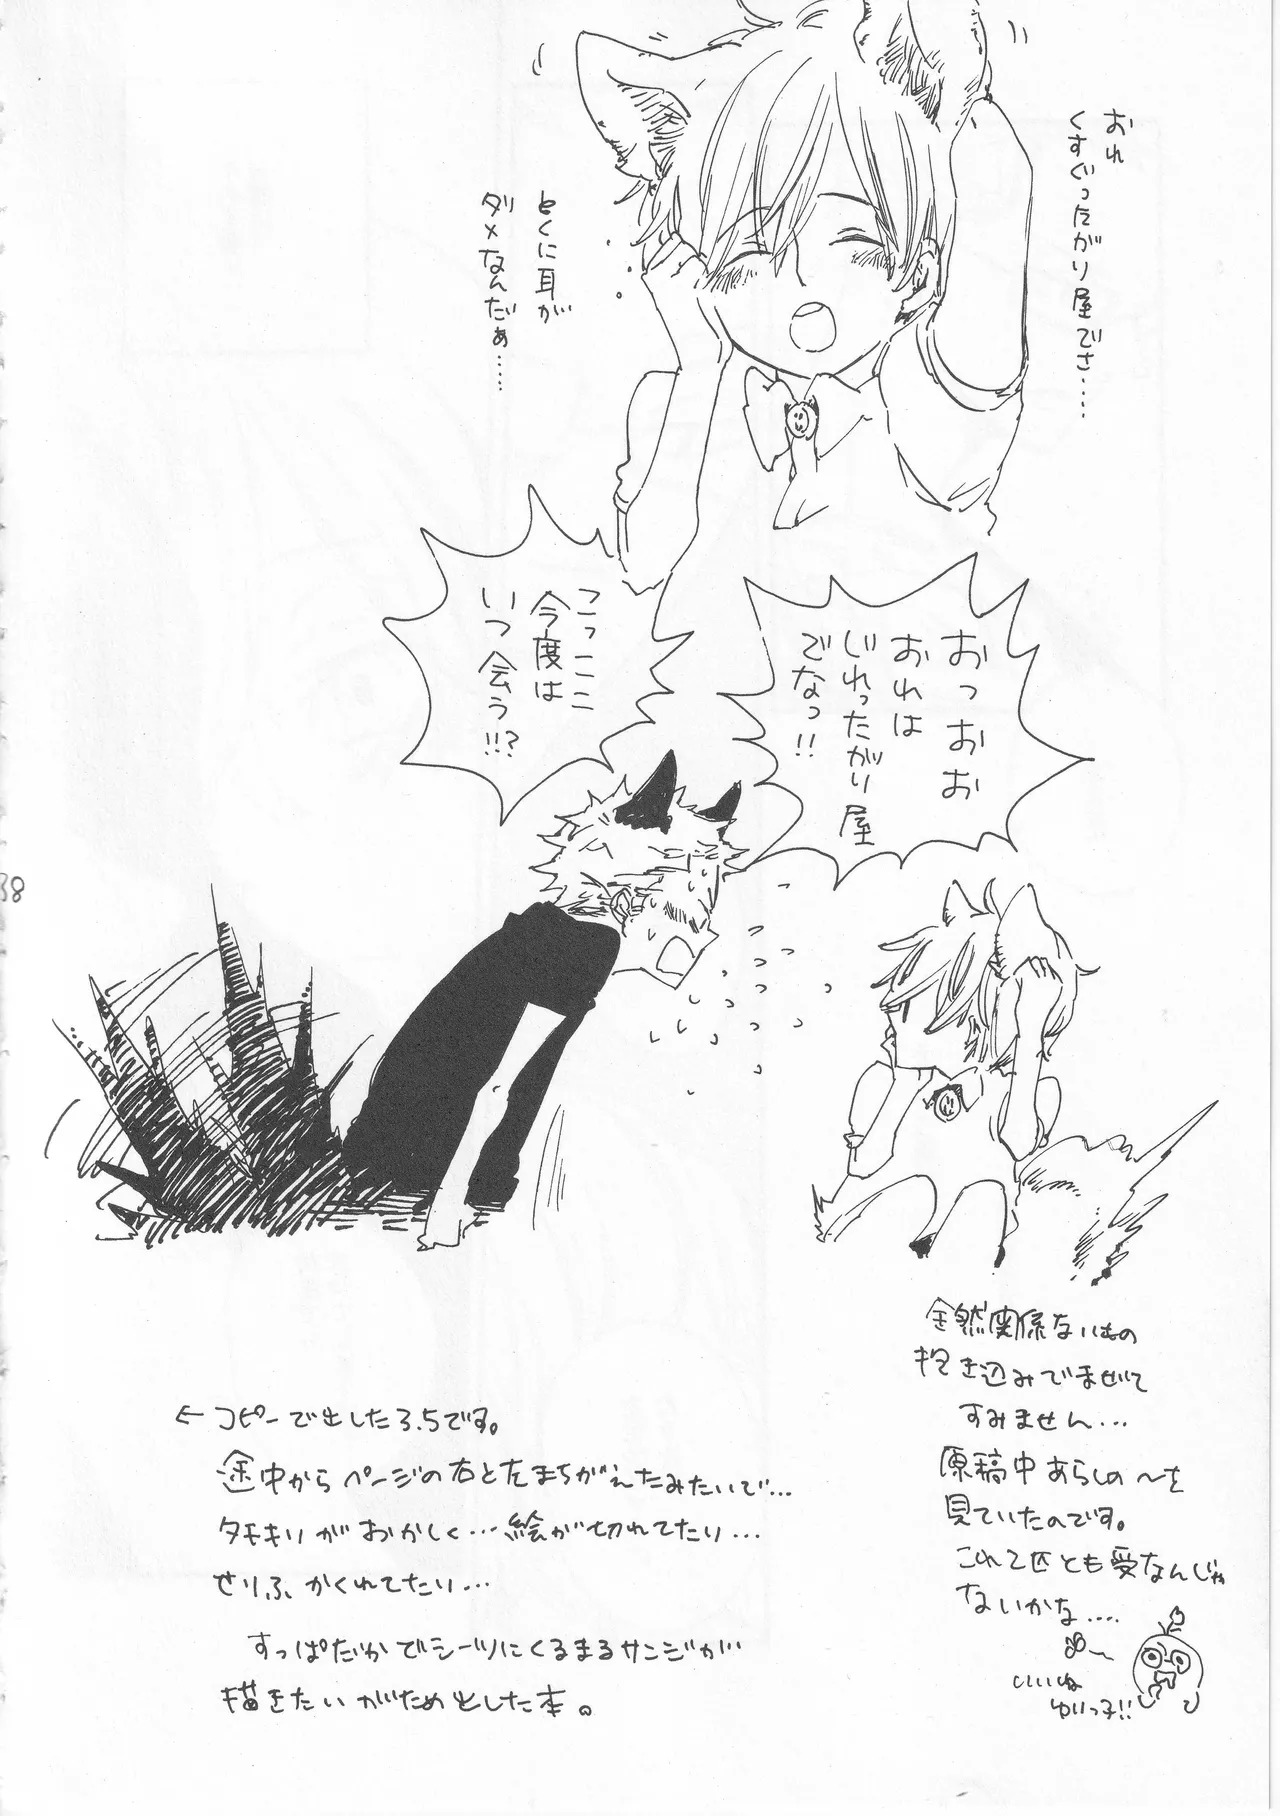 おれ
くすぐったがり屋でさ……
とくに耳が
ダメなんだぁ……
おっおお
おれは
じれったがり屋
でなっ!!
こっここ
今度は
いつ会う!!?
38
全然関係ないもの
抱き込みでませて
すみません…
原稿中あらしの〜を
見ていたのです。
これ2匹とも受なんじゃ
ないかな……
いいね
ゆりっ子!!
← コピーで出した3.5です。
途中からページの右と左まちがえたみたいで…
タチキリがおかしく…絵が切れてたり…
せりふかくれてたり…
すっぱだかでシーツにくるまるサンジが
描きたいがためとした本。